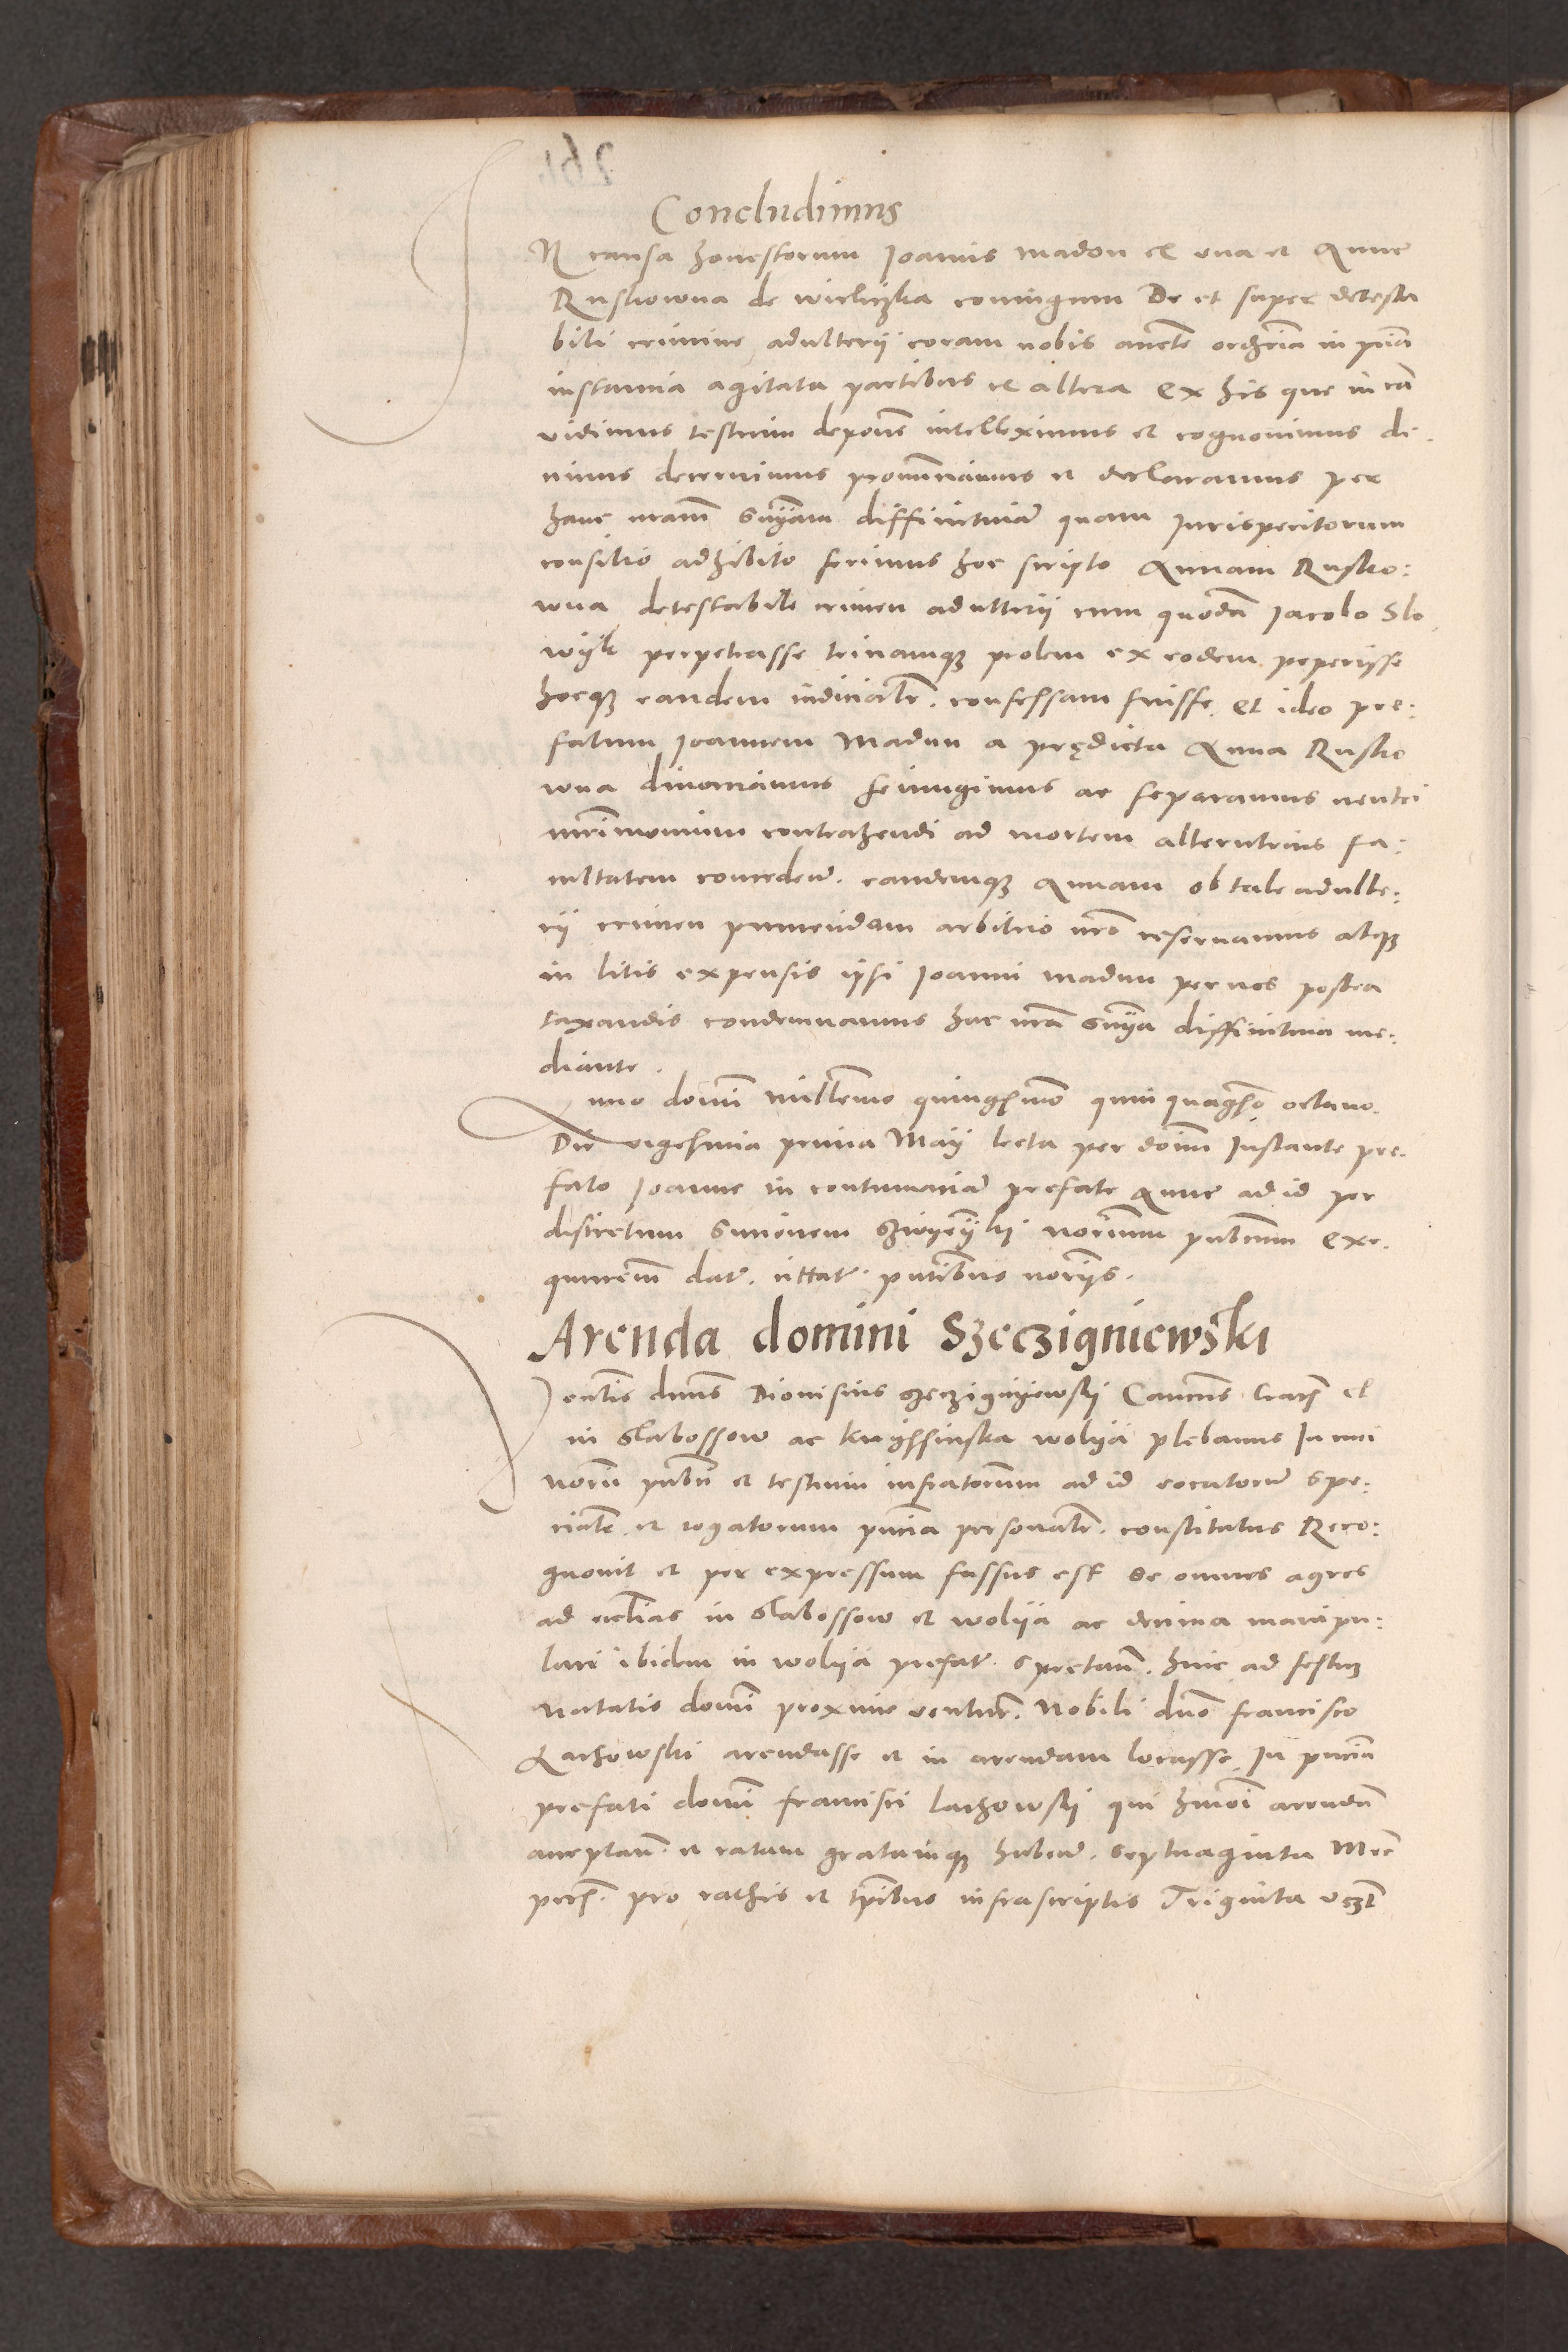 Concludimus
IN causa honestorum Joannis Madon et vna et Anne
Ruskowna de Wieliczka coniugum De et super detesta
bili crimine adulterij coram nobis aucte ordria in pria
instantia agitata partibus et altera Ex his que in ea
vidimus testium depons intelleximus et cognouimus di-
cimus decernimus pronunciamus et declaramus per
hanc nram snyam diffinitiua quam Jurisperitorum
consilio adhibito ferimus hoc scripto Annam Rusko:
wna detestabile crimen adulterij cum quoda Jacobo Slo
wyk perpetrasse trinamq3 prolem ex eodem peperisse
hocq3 eandem iudicialr. confessam fuisse. et ideo pre:
fatum Joannem Madun a prędicta Anna Rusko
wna diuorciamus seiungimus ac separamus neutri
mrimonium contrahendi ad mortem alterutrius fa:
cultatem conceden. eandemq3 Annam ob tale adulte:
rij crimen puniendam arbitrio nro reseruamus atq3
in litis expensis ipsi Joanni Madun per nos postea
taxandis condemnamus hac nra snya diffinitiua me:
diante.
Anno domini millemo quingsmo quinquagso octauo.
Die vigesima prima Maij lecta per dominum Instante pre.
fato Joanne in contumacia prefate Anne ad id per
discretum Simonem norium publicum Exe.
qutorem dat. cittat. pntibus noriis.
Arenda domini Szeczigniewski
Venlis dnus Dionisius Szeczignyewskj Canonus Crac et
in Slabossow ac Knyssinska wolya plebanus In mei
norii publi et testium infratorum ad id vocatorum spe:
cialr et rogatorum pntia personalr. constitutus Reco:
gnouit et per expressum fassus est se omnes agros
ad ecclias in Slabossow et wolya ac decima manipu:
lari ibidem in wolya prefat. spectan. hinc ad festum
natalis domini proxime ventur. Nobili dno Francisco
Lachowski arendasse et in arendam locasse In pntia
prefati domini Francisci Lachowskj qui hmoi arendam
acceptan. et ratam gratamq3 haben. septuaginta Mrc
pro rathis et tpibus infrascriptis Triginta vczt